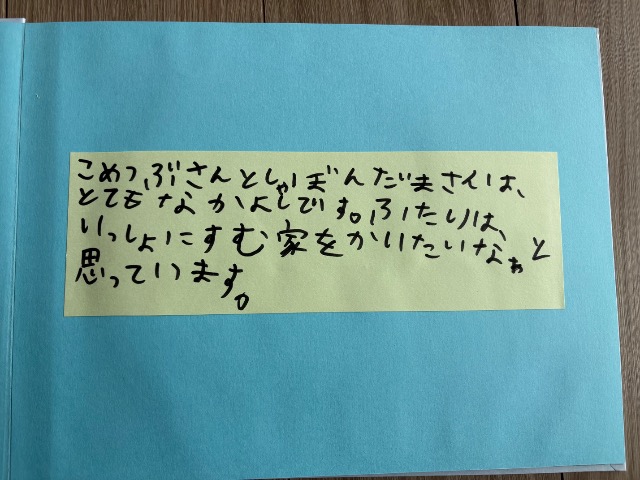 こめつぶさんとしゃぼんだまさんは、
とてもなかよしです。ふたりは、
いっしょにすむ家をかいたいなぁと
思っています。